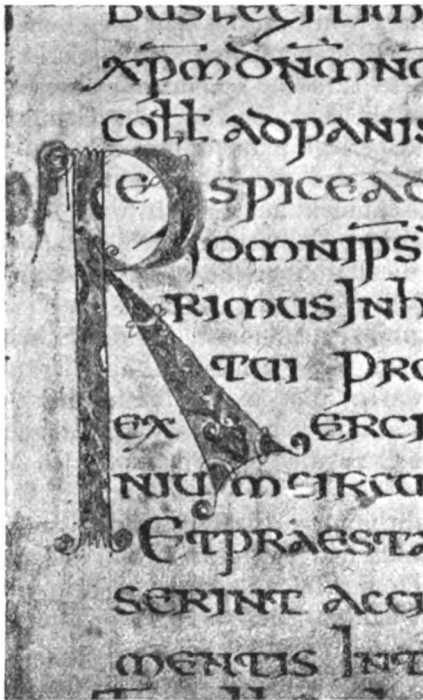 xp̄m dn̄m
coll ad panis
Respice ad
omnip̄s
rimus Inh
tui pro
ex erci
nium circu
Et praesta
serint acci
mentis Int